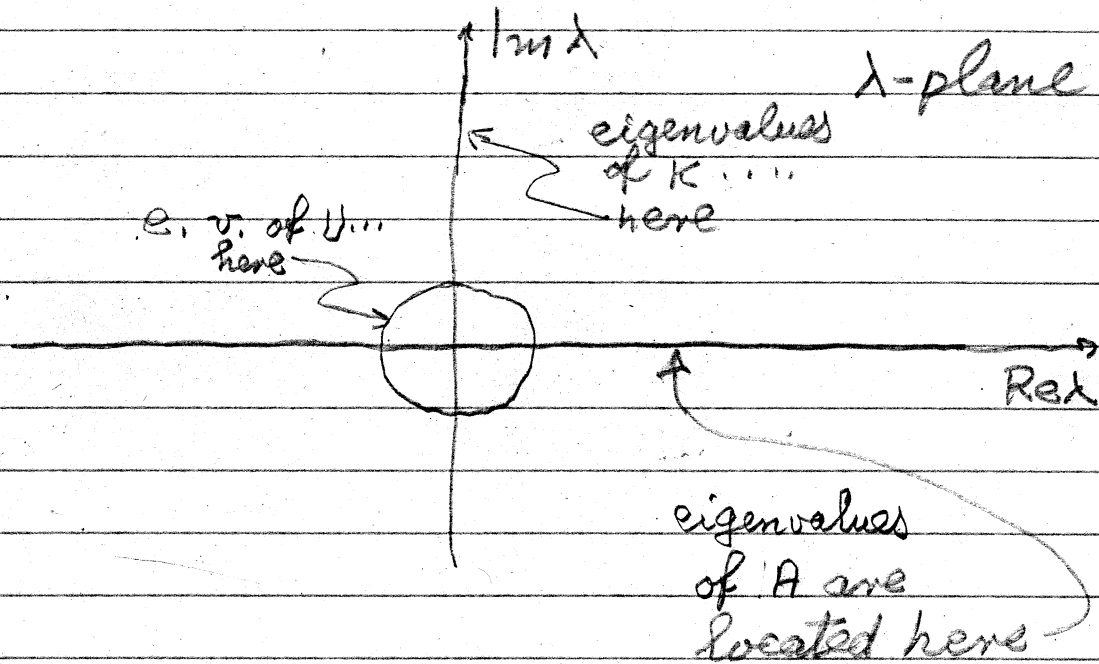 Im λ
λ-plane
eigenvalues
of K ....
here
e. v. of U...
here
Re λ
eigenvalues
of A are
located here